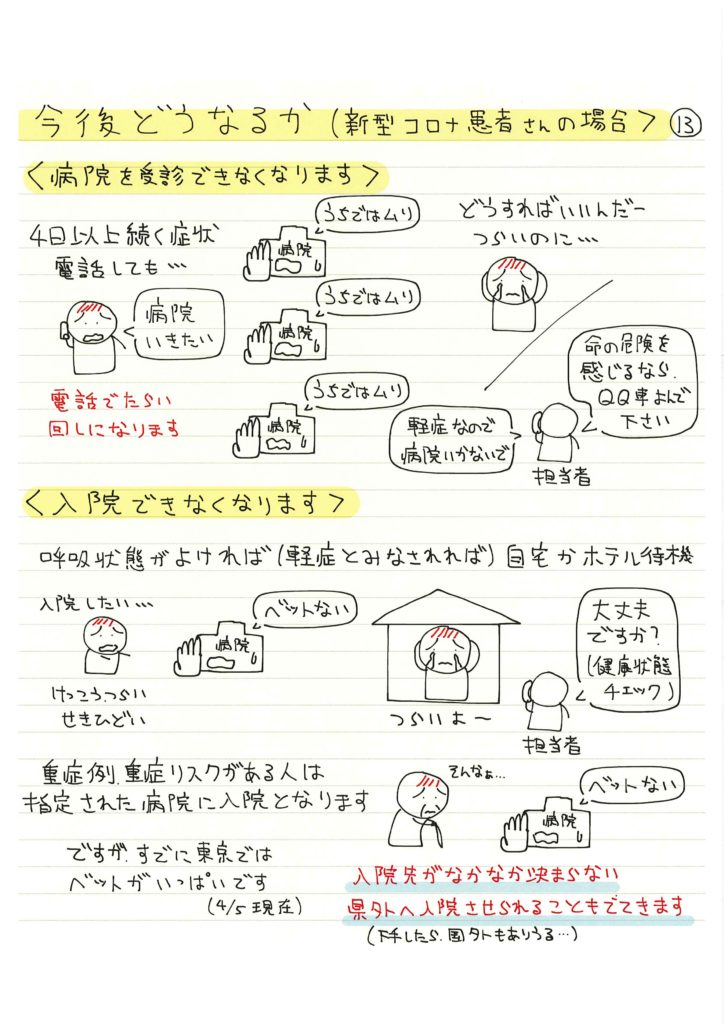 今後どうなるか(新型コロナ患者さんの場合> ⑬
<病院を受診できなくなります>
4日以上続く症状
電話しても…
病院
いきたい
うちではムリ
病院
うちではムリ
病院
うちではムリ
病院
電話でたらい
回しになります
どうすればいいんだー
つらいのに…
命の危険を
感じるなら、
QQ車よんで
下さい
軽症なので
病院いかないで
担当者
<入院できなくなります>
呼吸状態がよければ(軽症とみなされれば)自宅かホテル待機
入院したい…
けっこうつらい
せきひどい
ベットない
病院
つらいよ〜
大丈夫
ですか?
(健康状態
チェック)
担当者
重症例、重症リスクがある人は
指定された病院に入院となります
ですが、すでに東京では
ベットがいっぱいです
(4/5現在)
そんなぁ…
ベットない
病院
入院先がなかなか決まらない
県外へ入院させられることもでてきます
(下手したら、国外もありうる…)